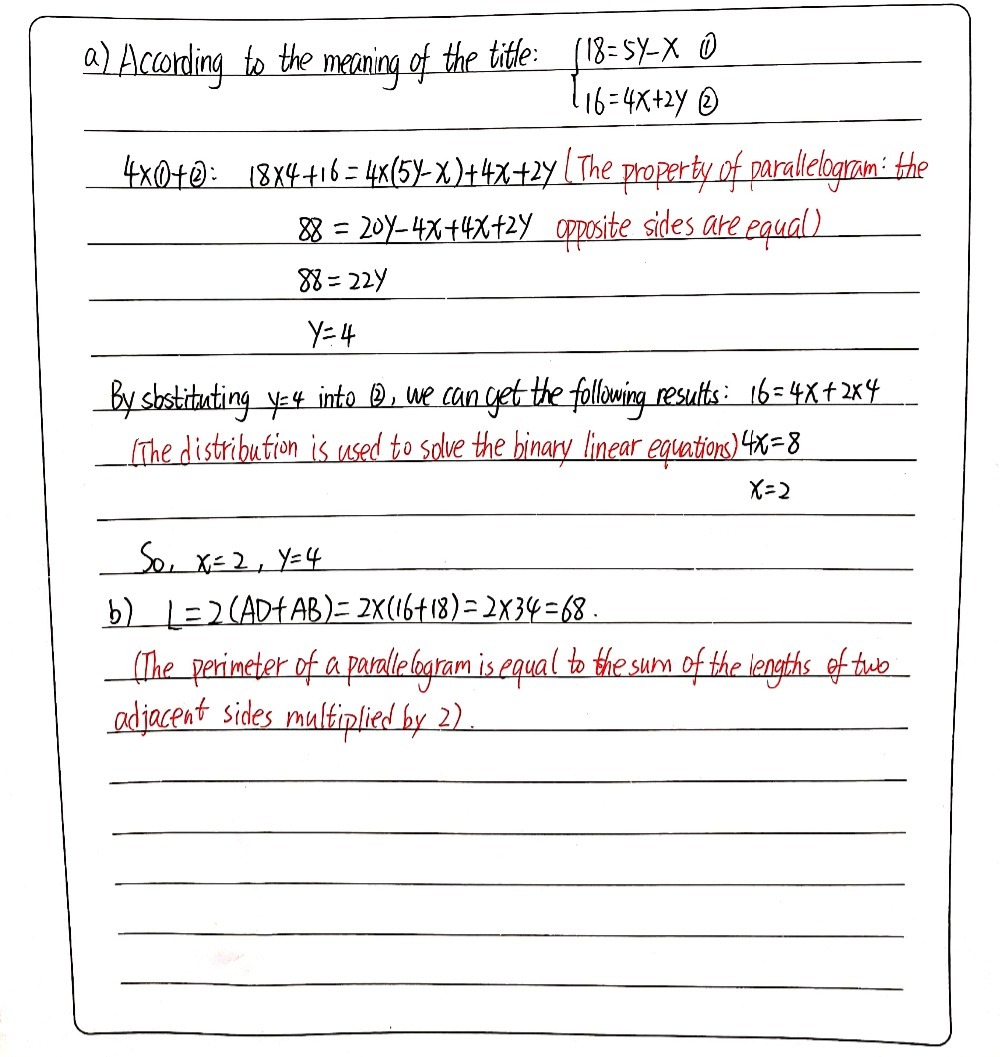 a) According to the meaning of the title: {18=5y-x ①
16=4x+2y ②
4×①+②: 18×4+16=4×(5y-x)+4x+2y (The property of parallelogram: the
88 = 20y-4x+4x+2y opposite sides are equal)
88=22y
y=4
By sbstituting y=4 into ②, we can get the following results: 16=4x+2×4
(The distribution is used to solve the binary linear equations) 4x=8
x=2
So, x=2, y=4
b) L=2(AD+AB)=2×(16+18)=2×34=68.
(The perimeter of a parallelogram is equal to the sum of the lengths of two
adjacent sides multiplied by 2).